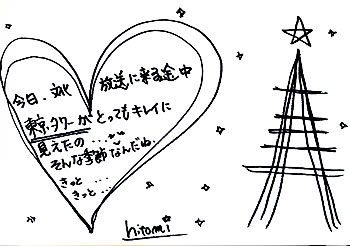 今日、文化放送に来る途中
東京タワーがとってもキレイに
見えたの……
そんな季節なんだね。
きっと…
きっと…
hitomi